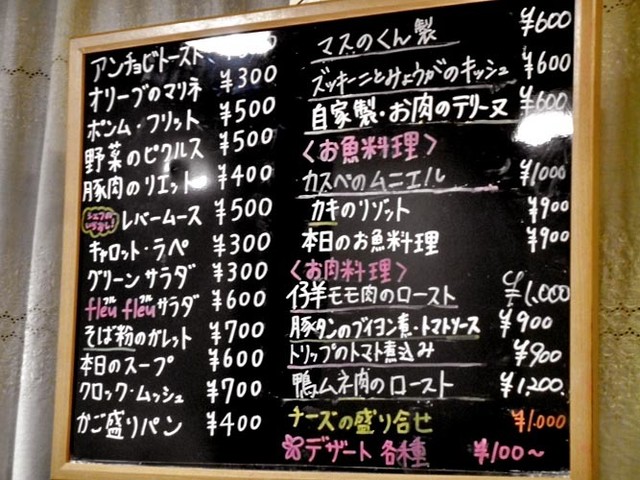 アンチョビトースト
オリーブのマリネ ¥300
ポンム・フリット ¥500
野菜のピクルス ¥500
豚肉のリエット ¥400
シェフの いちおし! レバームース ¥500
キャロット・ラペ ¥300
グリーンサラダ ¥300
fleu fleuサラダ ¥600
そば粉のガレット ¥700
本日のスープ ¥600
クロック・ムッシュ ¥700
かご盛りパン ¥400
マスのくん製 ¥600
ズッキーニとみょうがのキッシュ ¥600
自家製・お肉のテリーヌ ¥600
〈お魚料理〉
カスベのムニエル ¥1000
カキのリゾット ¥900
本日のお魚料理 ¥900
〈お肉料理〉
仔羊モモ肉のロースト ¥1,000
豚タンのブイヨン煮・トマトソース ¥900
トリップのトマト煮込み ¥900
鴨ムネ肉のロースト ¥1,200
チーズの盛り合せ ¥1,000
デザート 各種 ¥100〜